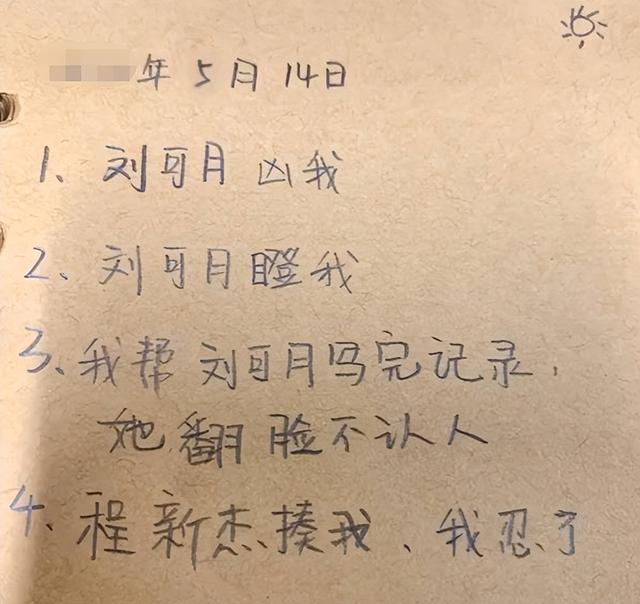 年5月14日
1、刘可月凶我
2、刘可月瞪我
3、我帮刘可月写完记录，
她翻脸不认人
4、程新杰揍我、我忍了